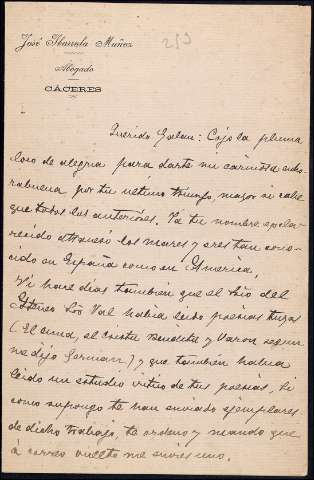 José Ibarrola Muñoz
Abogado
CÁCERES
253
Querido Galan: Cojo la pluma
loco de alegria para darte mi cariñosa enho-
rabuena por tu último triunfo, mayor si cabe
que todos los anteriores. Ya tu nombre escla-
recido atravesó los mares y eres tan cono-
cido en España como en America.
Vi hace dias tambien que el Srio del
Ateneo Sor Val habia leido poesias tuyas
(El ama, el Cristu benditu y Varon segun
me dijo German) y que tambien habia
leido un estudio critico de tus poesias. Si
como supongo te han enviado ejemplares
de dicho trabajo, te ordeno y mando que
á correo vuelto me envies uno.